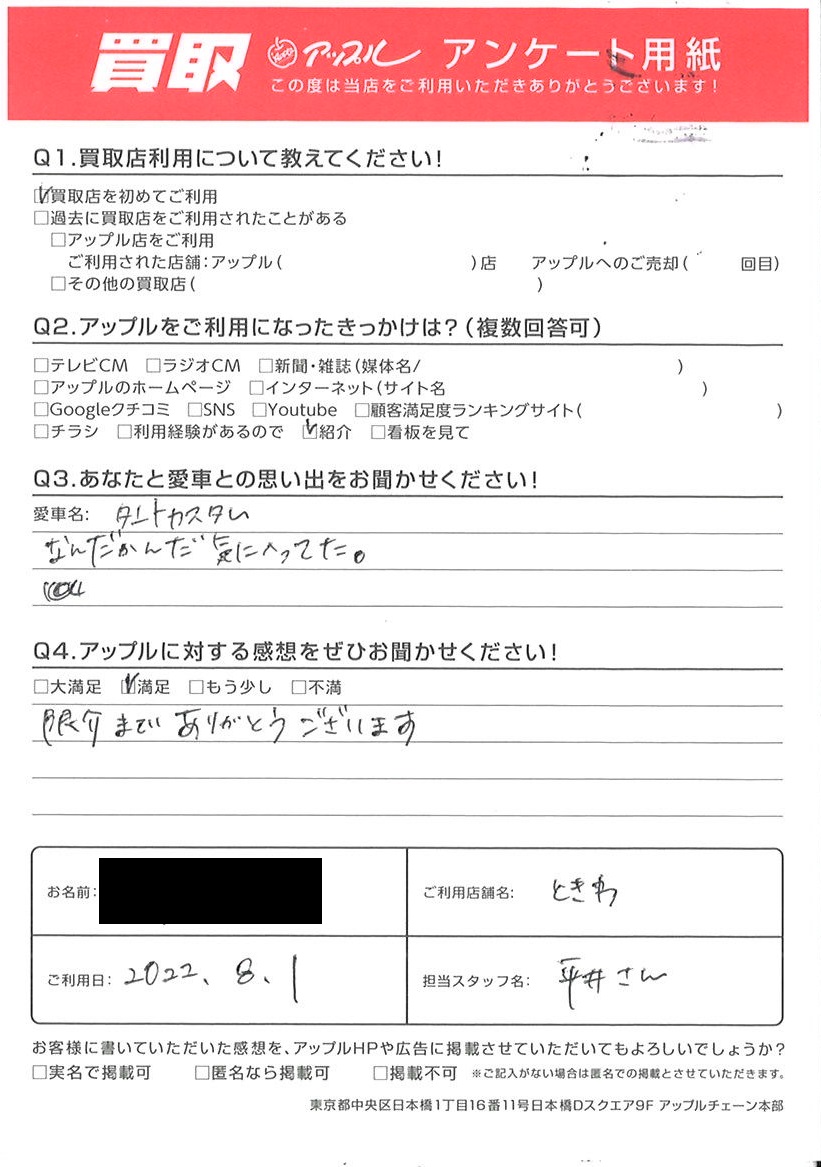 買取 アップル アンケート用紙
この度は当店をご利用いただきありがとうございます!
Q1.買取店利用について教えてください!
☑買取店を初めてご利用
□過去に買取店をご利用されたことがある
□アップル店をご利用
ご利用された店舗:アップル( )店 アップルへのご売却( 回目)
□その他の買取店( )
Q2.アップルをご利用になったきっかけは?(複数回答可)
□テレビCM □ラジオCM □新聞・雑誌(媒体名/ )
□アップルのホームページ □インターネット(サイト名 )
□Googleクチコミ □SNS □Youtube □顧客満足度ランキングサイト( )
□チラシ □利用経験があるので ☑紹介 □看板を見て
Q3.あなたと愛車との思い出をお聞かせください!
愛車名: タントカスタム
なんだかんだ気に入ってた。
Q4.アップルに対する感想をぜひお聞かせください!
□大満足 ☑満足 □もう少し □不満
までありがとうございます
お名前:
ご利用店舗名: ときわ
ご利用日: 2022、8、1
担当スタッフ名: 平井さん
お客様に書いていただいた感想を、アップルHPや広告に掲載させていただいてもよろしいでしょうか?
□実名で掲載可 □匿名なら掲載可 □掲載不可 ※ご記入がない場合は匿名での掲載とさせていただきます。
東京都中央区日本橋1丁目16番11号日本橋Dスクエア9F アップルチェーン本部